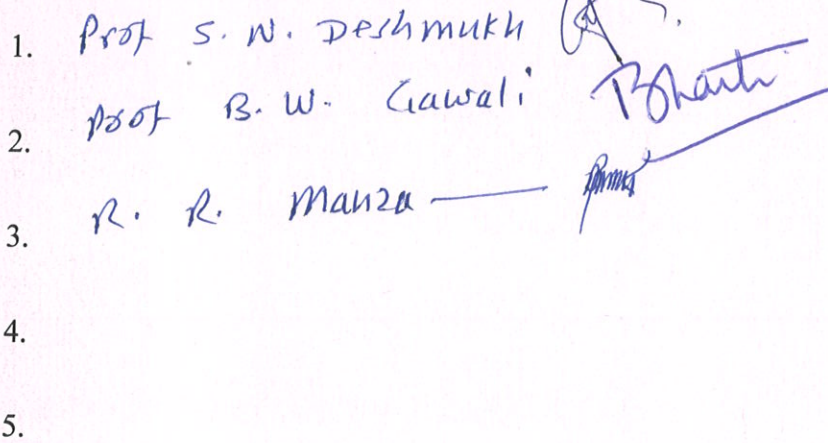 1. Prof S. N. Deshmukh
2. Prof B. W. Gawali Bharti
3. R. R. Manza
4.
5.